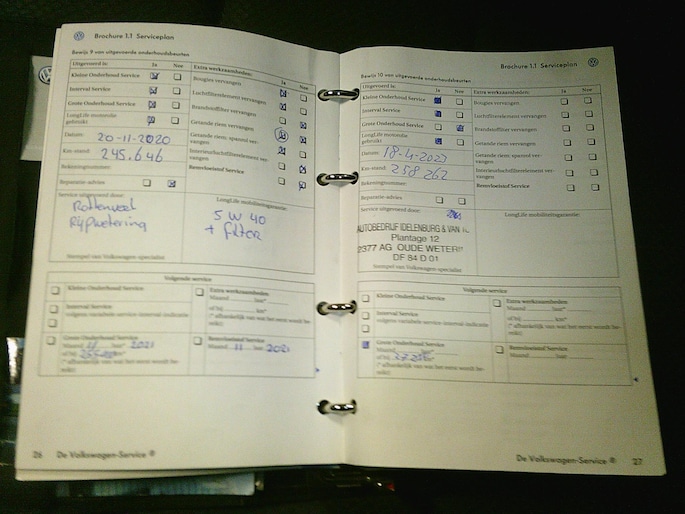 Brochure 1.1 Serviceplan
Bewijs 9 van uitgevoerde onderhoudsbeurten
Uitgevoerd is: Ja Nee
Kleine Onderhoud Service
Interval Service
Grote Onderhoud Service
LongLife motorolie gebruikt
Datum: 20-11-2020
Km-stand: 245.646
Rekeningnummer:
Reparatie-advies
Extra werkzaamheden: Ja Nee
Bougies vervangen
Luchtfilterelement vervangen
Brandstoffilter vervangen
Getande riem vervangen
Getande riem; spanrol vervangen
Interieurluchtfilterelement vervangen
Remvloeistof Service
Service uitgevoerd door:
Rottenveel
Rijpwetering
Stempel van Volkswagen-specialist
LongLife mobiliteitsgarantie:
5 W 40
+ filter
Volgende service
Kleine Onderhoud Service
Interval Service
volgens variabele service-interval-indicatie
Grote Onderhoud Service
Maand 11 jaar 2021
of bij km*
(* afhankelijk van wat het eerst wordt bereikt)
Extra werkzaamheden
Maand jaar*
of bij km*
(* afhankelijk van wat het eerst wordt bereikt)
Remvloeistof Service
Maand 11 jaar 2021
26 De Volkswagen-Service ®
Brochure 1.1 Serviceplan
Bewijs 10 van uitgevoerde onderhoudsbeurten
Uitgevoerd is: Ja Nee
Kleine Onderhoud Service
Interval Service
Grote Onderhoud Service
LongLife motorolie gebruikt
Datum: 18-4-2023
Km-stand 258 262
Rekeningnummer:
Reparatie-advies
Extra werkzaamheden: Ja Nee
Bougies vervangen
Luchtfilterelement vervangen
Brandstoffilter vervangen
Getande riem vervangen
Getande riem; spanrol vervangen
Interieurluchtfilterelement vervangen
Remvloeistof Service
Service uitgevoerd door:
AUTOBEDRIJF IDELENBURG & VAN
Plantage 12
2377 AG OUDE WETERI
DF 84 D 01
Stempel van Volkswagen-specialist
LongLife mobiliteitsgarantie:
Volgende service
Kleine Onderhoud Service
Interval Service
volgens variabele service-interval-indicatie
Grote Onderhoud Service
Maand jaar
of bij km*
(* afhankelijk van wat het eerst wordt bereikt)
Extra werkzaamheden
Maand jaar*
of bij km*
(* afhankelijk van wat het eerst wordt bereikt)
Remvloeistof Service
Maand jaar
De Volkswagen-Service ® 27